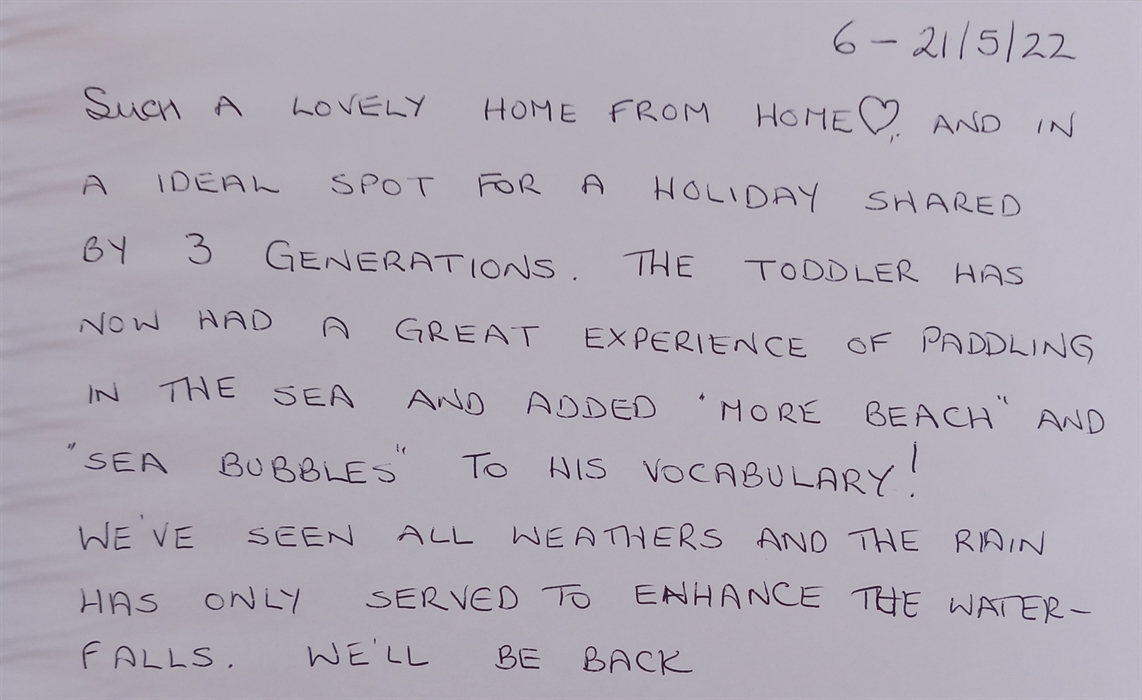 6 - 21/5/22
Such A LOVELY HOME FROM HOME♡, AND IN
A IDEAL SPOT FOR A HOLIDAY SHARED
BY 3 GENERATIONS. THE TODDLER HAS
NOW HAD A GREAT EXPERIENCE OF PADDLING
IN THE SEA AND ADDED "MORE BEACH" AND
"SEA BUBBLES" TO HIS VOCABULARY!
WE'VE SEEN ALL WEATHERS AND THE RAIN
HAS ONLY SERVED TO ENHANCE THE WATER-
FALLS. WE'LL BE BACK